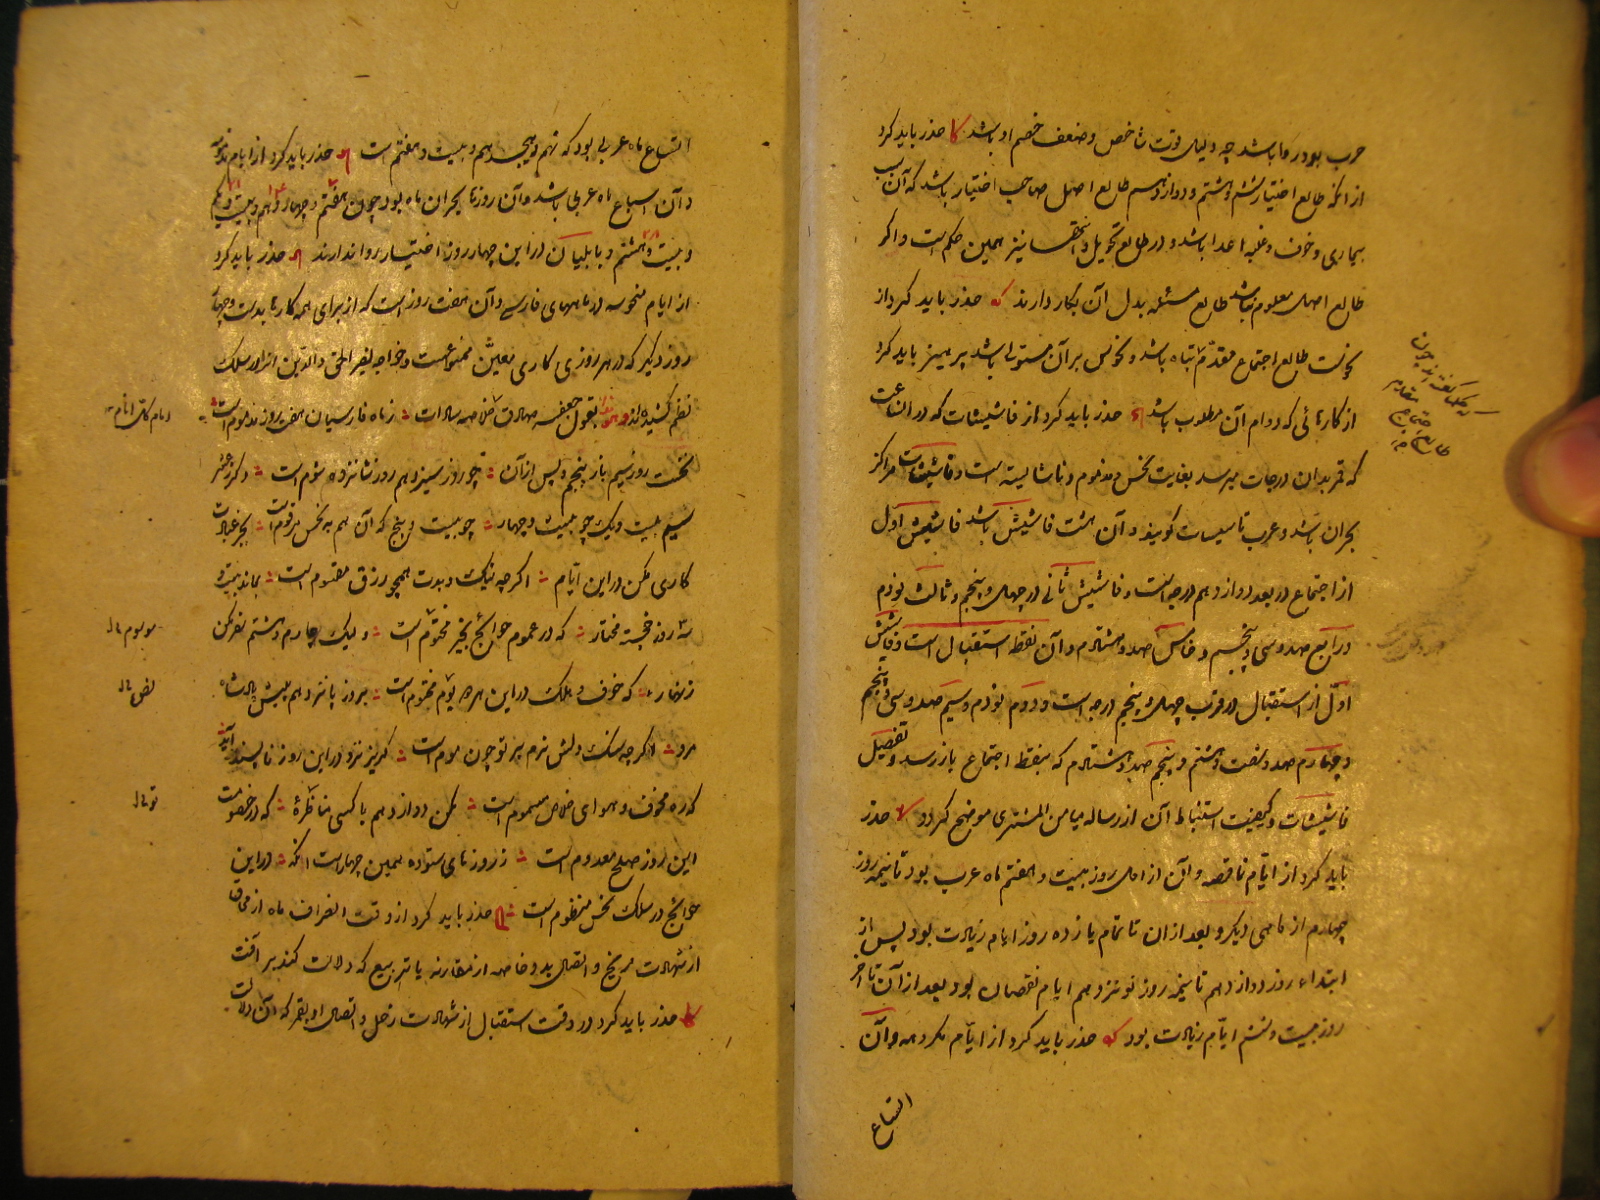 حرب بود روا باشد چه دلیل قوت شاخص و ضعف خصم او باشد کا حذر باید کرد
از آنکه طالع اختیار ششم و دوازدهم طالع اصل صاحب اختیار باشد که آن سبب
بیماری و خوف و غلبه اعدا باشد و در طالع تحویل و انتها نیز همین حکم است و اگر
طالع اصل معلوم نباشد طالع مسئله بدل آن بکار دارند که حذر باید کرد از
نحوست طالع اجتماع مقدم تباه باشد و نحوس بر آن مستولی باشد پرهیز باید کرد
از کارهائی که دوام آن مطلوب باشد حذر باید کرد از فاشیشات که در آن ساعت
که قمر بدان درجات میرسد بغایت نحس و مذموم و ناشایسته است و فاشیشات مراکز
بحران باشد و عرب تاسیسات گویند و آن هشت فاشیش باشد فاشیش اول
از اجتماع در بعد دوازدهم درجه است و فاشیش ثانی در چهل و پنجم و ثالث نودم
و رابع صد و سی و پنجم و خامس صد و هشتادم و آن نقطه استقبال است و فاشیش
اول از استقبال در قرب چهل و پنجم درجه است و دوم نودم و سیم صد و سی و پنجم
و چهارم صد و شصت و هشتم و پنجم صد و هشتادم که بنقطه اجتماع باز رسد و تفصیل
فاشیشات و کیفیت استنباط آن از رساله میامن المشتری موضح گردد حذر
باید کرد از ایام ناقصه و آن از اول روز بیست و هفتم ماه عرب بود تا نیمه روز
چهارم از ماهی دیگر و بعد از آن تا تمام یازده روز ایام زیادت بود پس از
ابتداء روز دوازدهم تا نیمه روز نوزدهم ایام نقصان بود بعد از آن تا آخر
روز بیست و ششم ایام زیادت بود که حذر باید کرد از ایام مکروهه و آن
اتساع
طالع اجتماع
اتساع ماه عربی بود که نهم و هیجدهم و بیست و هفتم است حذر باید کرد از ایام مذمومه
و آن اسباع ماه عربی باشد و آن روزها بحران ماه بود چون هفتم و چهاردهم و بیست و یکم
و بیست و هشتم و بابلیان در این چهار روز اختیار روا ندارند حذر باید کرد
از ایام منحوسه در ماههای فارسی و آن هفت روز است که از برای همه کارها بدست و چهار
روز دیگر که در هر روزی کاری معین ممنوعست و خواجه نصیر الحق والدین آنرا در سلک
نظم کشیده‌اند و هو هذا بقول جعفر صادق خلاصه سادات ز ماه فارسیان هفت روز مذموم است
نخست روز سیم باز پنجم و پس از آن چو روز سیزدهم روز شانزدهم شوم است دگر ز عشر
سیم بیست و یک چو بیست و چهار چو بیست و پنج که آن هم به نحس مرقوم است بجز عبادت
کاری مکن در این ایام اگر چه نیک و بدت همچو رزق مقسوم است بماند بیست و
سه روز خجسته مختار که در عموم حوائج بخیر مختوم است و لیک چارم و هشتم سفر مکن
زنهار که خوف و هلک در این هر دو یوم محتوم است بروز پانزدهم پیش پادشاه
مرو اگر چه سنگ دلش نرم بر تو چون موم است گریز نیز در این روز ناپسند آید
که ره مخوف و هوای خلاص مسموم است مکن دوازدهم با کسی مناظره که در خصومت
این روز صلح معدوم است ز روزهای ستوده همین چهار است آنکه در این
حوائج در سلک نحس منظوم است حذر باید کرد از وقت انصراف ماه از محاق
از شهادت مریخ و اتصال بدو خاصه از مقارنه یا تربیع که دلالت کند بر آفت
حذر باید کرد در وقت استقبال از شهادت زحل و اتصال او بقمر که آن دلالت